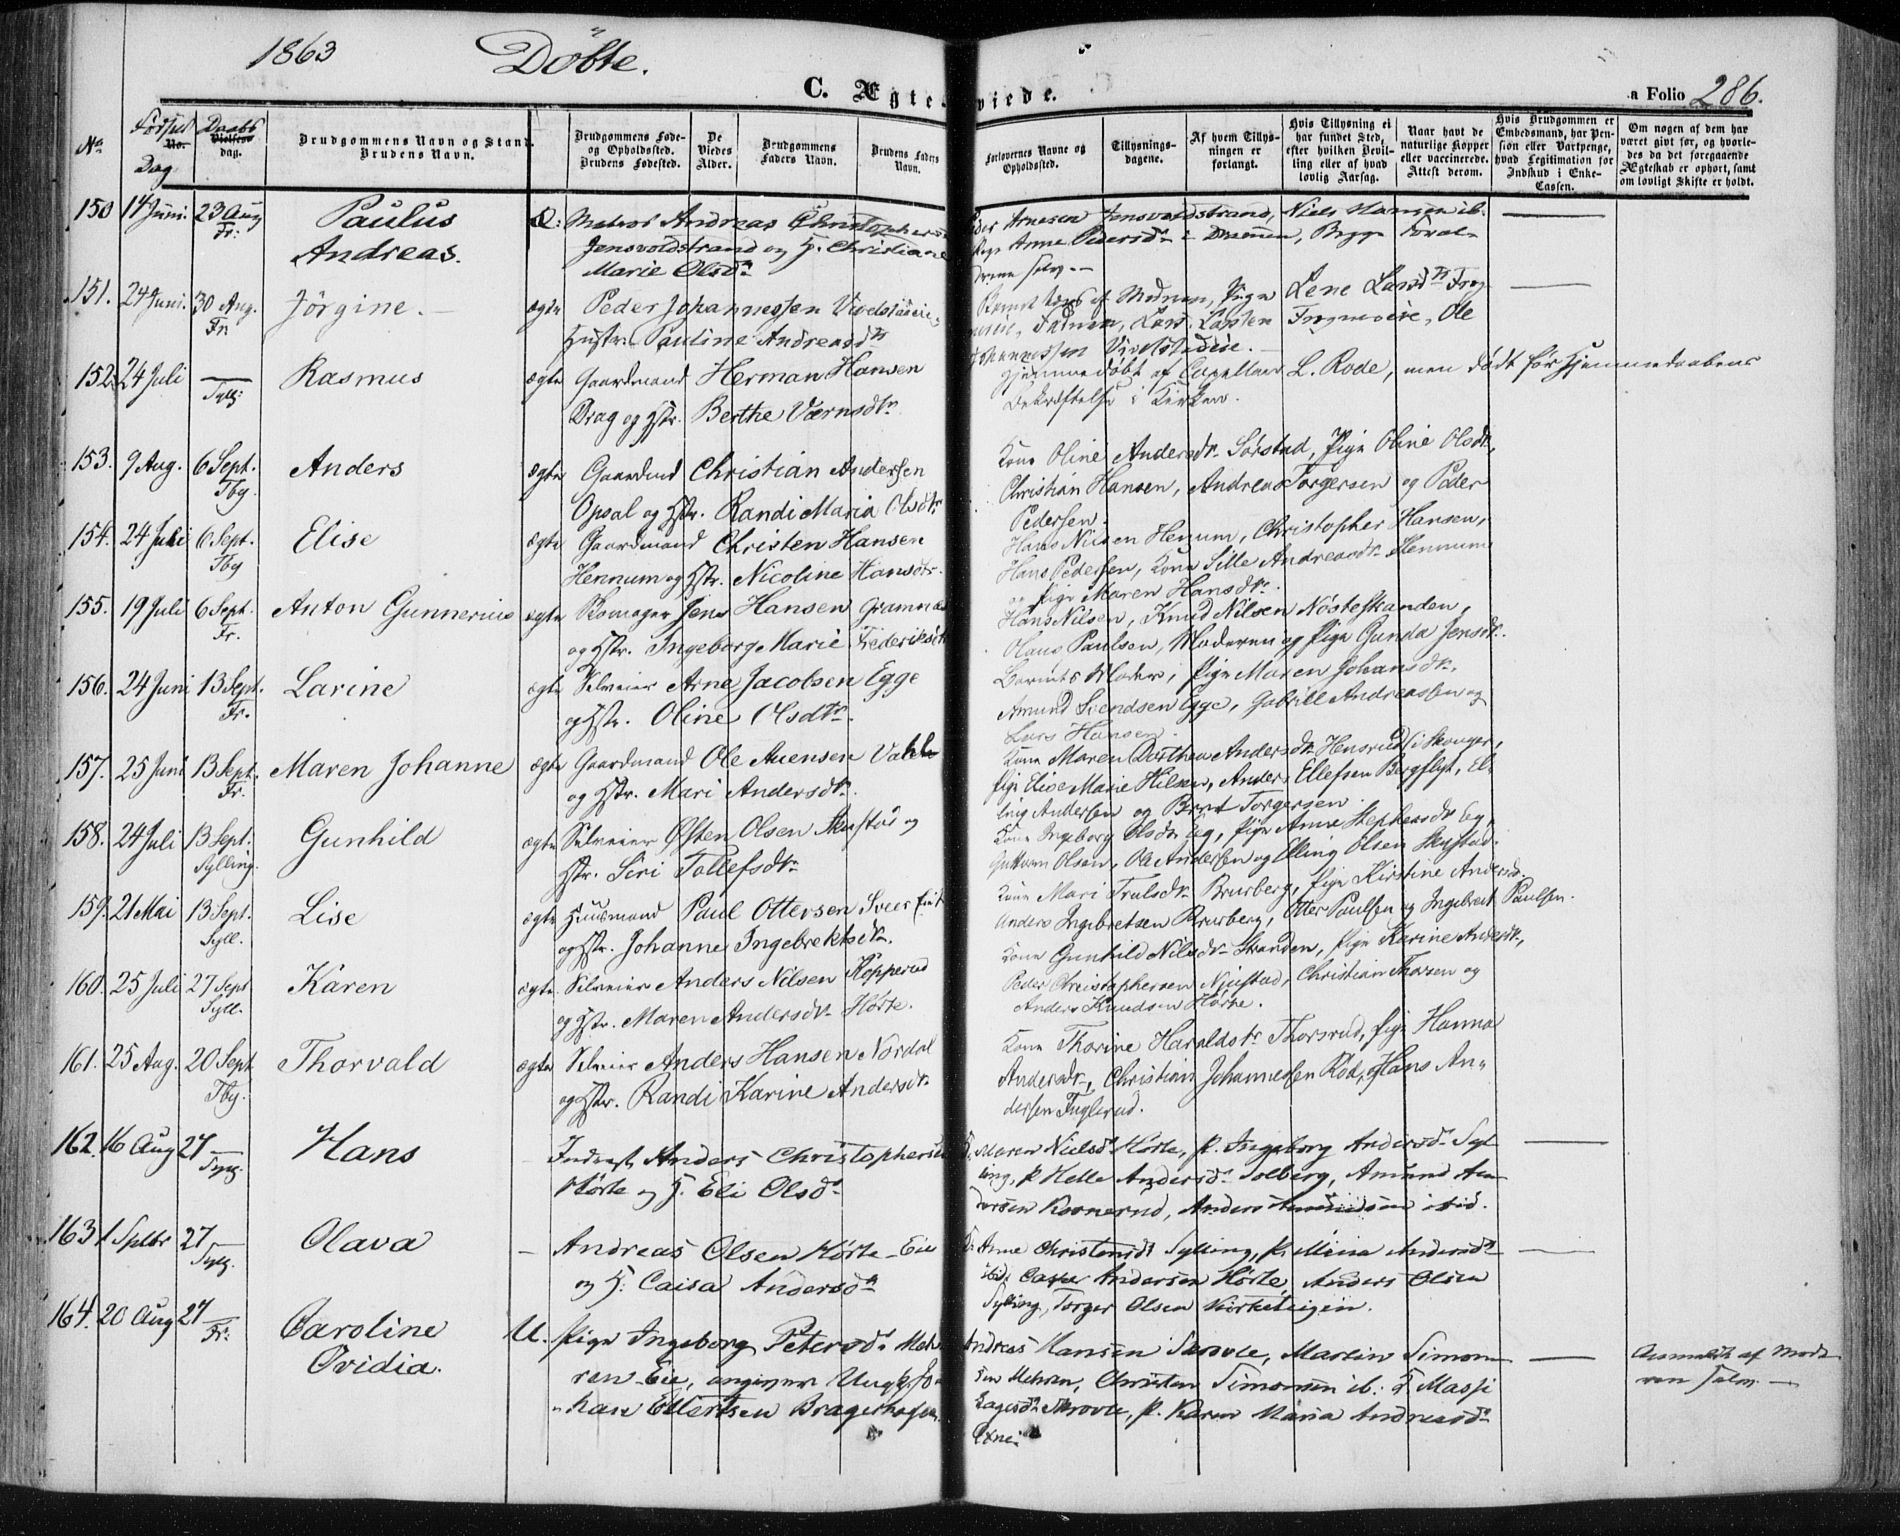 1863 Döbte.
C. Ægte viede.
a Folio 286.
No
Födsels
No.
Dag
Daabs
Vielses
dag.
Brudgommens Navn og Stand
Brudens Navn.
Brudgommens Føde-
og Opholdssted.
Brudens Fødested.
De
Viedes
Alder.
Brudgommens
Faders Navn.
Brudens Faders
Navn.
Forlovernes Navne og
Opholdssted.
Tillysnings-
dagene.
Af hvem Tillys-
ningen er
forlangt.
Hvis Tillysning ei
har fundet Sted,
efter hvilken Bevil-
ling eller af hvad
lovlig Aarsag.
Naar havt de
naturlige Kopper
eller vaccinerede.
Attest derom.
Hvis Brudgommen er
Embedsmand, har Pen-
sion eller Vartpenge,
hvad Legitimation for
Indskud i Enke-
Cassen.
Om nogen af dem har
været gift før, og hvorle-
des da det foregaaende
Ægteskab er ophørt, samt
om lovligt Skifte er holdt.
150 14 Juni. 23 Aug Paulus Matros Andreas Christophers
Fr. Andreas. Jensvoldstrand og H. Christiane
Marie Olsdr
Arnesen Jensvoldstrand, Niels Hansen ib.
Anne Pedersdr i Drammen, Begge Foræl-
drene selv.
151. 24 Juni. 30 Aug. Jörgine. ægte Peder Johannessen Vivelstadeie
Fr. Hustr. Pauline Andreasdr
Moderen, Pige Lene Larsdr Frog
Faderen, Lars Larsen Frognereie, Ole
Johannessen Vivelstadeie.
152. 24 Juli Rasmus ægte Gaardmand Herman Hansen
Syllg. Drag og Hstr. Berthe Værnsdtr.
Hjemmedøbt af Capellan L. Rode, men dødt før Hjemmedaabens
Bekræftelse i Kirken.
153. 9 Aug. 6 Sept. Anders ægte Gaardmd Christian Andersen
Tbg. Opsal og Hstr. Randi Maria Olsdtr
Kone Oline Andersdr. Sørstad, Pige Oline Olsdr,
Christian Hansen, Andreas Torgersen og Peder
Pedersen.
154. 24 Juli 6 Sept. Elise ægte Gaardmand Christen Hansen
Tbg Hennum og Hstr. Nicoline Hansdtr.
Hans Nilsen Henum, Christopher Hansen,
Hans Pedersen, Kone Sille Andreasdr. Hennum
og Pige Maren Hansdr.
155. 19 Juli 6 Sept. Anton Gunnerius ægte Skomager Jens Hansen
Fr. og Hstr. Ingeborg Marie Frederiksdtr
Hans Nilsen, Knud Nilsen Nösteskanden,
Hans Paulsen, Moderen og Pige Gunda Jensdr.
156. 24 Juni 13 Sept. Larine ægte Selveier Arne Jacobsen Egge
Fr. og Hstr. Oline Olsdtr.
Barnets Moder, Pige Maren Johansdr,
Amund Svendsen Egge, Gabriel Andreassen og
Lars Hansen.
157. 25 Juni 13 Sept. Maren Johanne ægte Gaardmand Ole Auensen
Fr. og Hstr. Mari Andersdr.
Kone Maren Dorthea Andersdr. Hensrud i Skouger,
Pige Elise Marie Nilsen, Anders Ellefsen Bergflyt, El-
ling Andersen og Bent Torgersen
158. 24 Juli 13 Sept. Gunhild ægte Selveier Østen Olsen Skustad og
Sylling. Hstr. Siri Tollefsdr.
Kone Ingeborg Olsdr. Eg, Pige Anne Stephensdr Eg,
Guttorm Olsen, Ole Andersen og Elling Olsen Skustad.
159. 21 Mai 13 Sept. Lise ægte Huusmand Paul Ottersen
Syll. og Hstr. Johanne Ingebrektsdr.
Kone Mari Trulsdr. Brurberg, Pige Kirstine Andersd.
Anders Ingebretsen Brurberg, Otter Paulsen og Ingebret Paulsen.
160. 25 Juli 27 Sept Karen ægte Selveier Anders Nilsen Kopperud
Syll. og Hstr. Maren Andersdr. Hörte.
Kone Gunhild Nilsdr. Stranden, Pige Karine Andersdr,
Peder Christophersen Njustad, Christian Thorsen og
Anders Knudsen Hörte.
161. 25 Aug. 20 Sept Thorvald ægte Selveier Anders Hansen Nordal
Tbg. og Hstr. Randi Karine Andersdr.
Kone Thorine Haraldstr Thorsrud, Pige Hanna
Andersdr, Christian Johannessen Röd, Hans An-
dersen Fuglerud.
162. 16 Aug 27 Hans Inderst Anders Christophersen
Syllg. Hörte og H. Eli Olsdr
Maren Nielsdr Hörte, P. Ingeborg Andersdr Syl
ling, P. Helle Andersdr Solberg, Amund An
dersen Kornerud, Anders Amundsen ibid.
163 1 Sptbr 27 Olava Andreas Olsen Hörte-Eie
Syllg. og H. Caisa Andersdr
Anne Christensdr Sylling, P. Mina Andersdr
ibid. Casper Andersen Hörte, Anders Olsen
Sylling, Torger Olsen Kirketeigen.
164. 20 Aug 27 Caroline U. Pige Ingeborg Petersdr Meh
Fr. Ovidia. ren Eie, angiver Ungk. Jo
han Ellertsen Bragerhagen
Andreas Hansen Skrovle, Martin Simon
sen Mehren, Christen Simonsen ib. K Massi
Skrovle, P. Karen Maria Andreasdr
Anmeldt af Mode
ren selv.